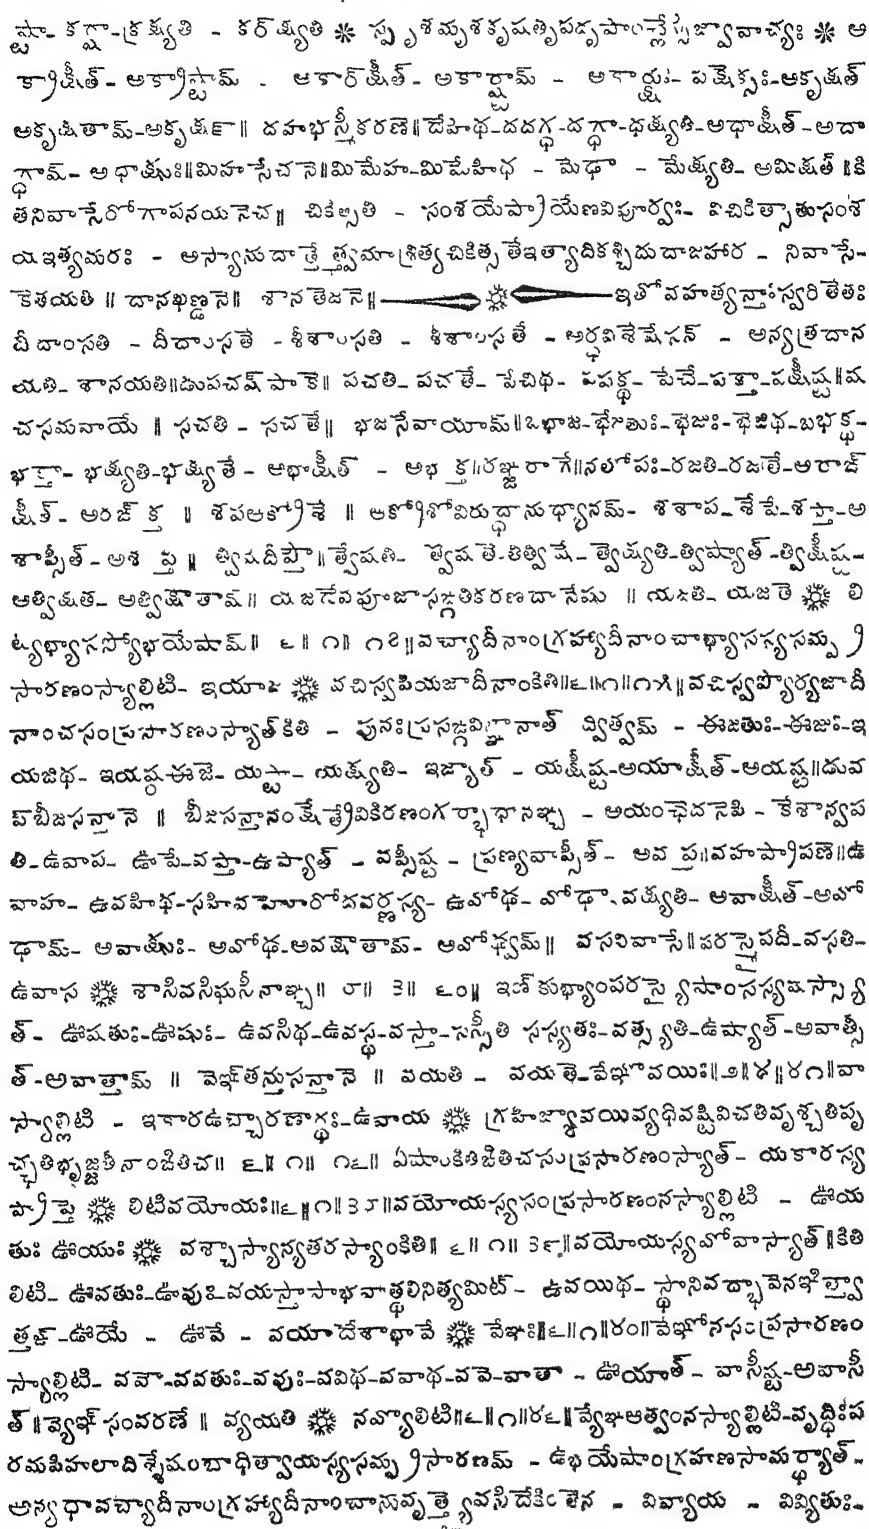 ష్టా- కర్ష్టా-క్రక్ష్యతి - కర్‌క్ష్యతి ❋ స్పృశమృశకృషతృపదృపాంచ్లేస్సిజ్వావాచ్యః ❋ అ
క్రాక్షీత్- అక్రాష్టామ్ - అకార్‌క్షీత్- అకార్ష్టామ్ - అకార్క్షుః- పక్షేక్సః-అకృక్షత్
అకృక్షతామ్-అకృక్షన్॥ దహభస్మీకరణే॥ దేహిథ-దదగ్ధ-దగ్ధా-ధక్ష్యతి-అధాక్షీత్-అదా
గ్ధామ్- అధాక్షుః॥మిహసేచనే॥మిమేహ-మిమేహిథ - మేఢా - మేక్ష్యతి- అమిక్షత్॥కి
తనివాసేరోగాపనయనేచ॥ చికిత్సతి - సంశయేప్రాయేణవిపూర్వః- విచికిత్సాతుసంశ
యఇత్యమరః - అస్యానుదాత్తేత్త్వమాశ్రిత్యచికిత్సతేఇత్యాదికశ్చిదుదాజహార - నివాసే-
కేతయతి ॥ దానఖణ్డనే॥ శానతేజనే॥ ఇతోవహత్యన్తాస్స్వరితేతః
దీదాంసతి - దీదాంసతే - శీశాంసతి - శీశాంసతే - అర్థవిశేషేసన్ - అన్యత్రదాన
యతి- శానయతి॥డుపచష్ పాకే॥ పచతి- పచతే- పేచిథ- పపక్థ- పేచే-పక్తా-పక్షీష్ట॥ష
చసమవాయే ॥ సచతి - సచతే॥ భజసేవాయామ్॥బభాజ-భేజతుః-భేజుః-భేజిథ-బభక్థ-
భక్తా- భక్ష్యతి-భక్ష్యతే - అభాక్షీత్ - అభక్త॥రఞ్జరాగే॥నలోపః-రజతి-రజతే-అరాఙ్
క్షీత్- అరఙ్క్త ॥ శపఆక్రోశే ॥ ఆక్రోశోవిరుద్ధానుధ్యానమ్- శశాప- శేపే-శప్తా-అ
శాప్సీత్- అశప్త ॥ త్విషదీప్తౌ॥త్వేషతి- త్వేషతే-తిత్విషే- త్వేక్ష్యతి-త్విష్యాత్ -త్విక్షీష్ట-
అత్విక్షత- అత్విక్షాతామ్॥ యజదేవపూజాసఙ్గతికరణదానేషు ॥ యజతి- యజతే ❋ లి
ట్యభ్యాసస్యోభయేషామ్॥ ౬॥ ౧॥ ౧౭॥వచ్యాదీనాంగ్రహ్యాదీనాంచాభ్యాసస్యసమ్ప్ర
సారణంస్యాల్లిటి- ఇయాజ ❋ వచిస్వపియజాదీనాంకితి॥౬॥౧॥౧౫॥వచిస్వప్యోర్యజాదీ
నాంచసంప్రసారణంస్యాత్‌కితి - పునఃప్రసఙ్గవిజ్ఞానాత్ ద్విత్వమ్ - ఈజతుః-ఈజుః-ఇ
యజిథ- ఇయష్ఠ-ఈజే- యష్టా- యక్ష్యతి- ఇజ్యాత్ - యక్షీష్ట-అయాక్షీత్-అయష్ట॥డువ
ప్‌బీజసన్తానే ॥ బీజసన్తానంక్షేత్రేవికిరణంగర్భాధానఞ్చ - అయంఛేదనేపి - కేశాన్వప
తి-ఉవాప- ఊపే-వప్తా-ఉప్యాత్ - వప్సీష్ట - ప్రణ్యవాప్సీత్- అవప్త॥వహప్రాపణే॥ఉ
వాహ- ఉవహిథ-సహివహోరోదవర్ణస్య- ఉవోఢ- వోఢా-వక్ష్యతి- అవాక్షీత్-అవో
ఢామ్- అవాక్షుః- అవోఢ-అవక్షాతామ్- అవోఢ్వమ్॥ వసనివాసే॥పరస్మైపదీ-వసతి-
ఉవాస ❋ శాసివసిఘసీనాఞ్చ॥ ౮॥ ౩॥ ౬౦॥ ఇణ్‌కుభ్యాంపరస్యైషాంసస్యషస్స్యా
త్- ఊషతుః-ఊషుః- ఉవసిథ-ఉవస్థ-వస్తా-సస్సీతి సస్యతః-వత్స్యతి-ఉష్యాత్ -అవాత్సీ
త్-అవాత్తామ్ ॥ వేఞ్‌తన్తుసన్తానే ॥ వయతి - వయతే-వేఞోవయిః॥౨॥౪॥౪౧॥వా
స్యాల్లిటి - ఇకారఉచ్చారణార్థః-ఉవాయ ❋ గ్రహిజ్యావయివ్యధివష్టివిచతివృశ్చతిపృ
చ్ఛతిభృజ్జతీనాంఙితిచ॥ ౬॥ ౧॥ ౧౬॥ ఏషాంకితిఙితిచసంప్రసారణంస్యాత్- యకారస్య
ప్రాప్తే ❋ లిటివయోయః॥౬॥౧॥౩౮॥వయోయస్యసంప్రసారణంనస్యాల్లిటి - ఊయ
తుః ఊయుః ❋ వశ్చాస్యాన్యతరస్యాంకితి॥ ౬॥ ౧॥ ౩౯॥వయోయస్యవోవాస్యాత్॥కితి
లిటి- ఊవతుః-ఊవుః-వయస్తాసాభవాత్థలినిత్యమిట్- ఉవయిథ- స్థానివద్భావేనఞిత్త్వా
త్తఙ్-ఊయే - ఊవే - వయాదేశాభావే ❋ వేఞః॥౬॥౧॥౪౦॥వేఞోనసంప్రసారణం
స్యాల్లిటి- వవౌ-వవతుః-వవుః-వవిథ-వవాథ-వవే-వాతా - ఊయాత్- వాసీష్ట-అవాసీ
త్॥వ్యేఞ్ సంవరణే॥ వ్యయతి ❋ నవ్యోలిటి॥౬॥౧॥౪౬॥వ్యేఞఆత్వంనస్యాల్లిటి-వృద్ధిఃప
రమపిహలాదిశ్శేషంబాధిత్వాయస్యసమ్ప్రసారణమ్ - ఉభయేషాంగ్రహణసామర్థ్యాత్-
అన్యధావచ్యాదీనాంగ్రహ్యాదీనాంచానువృత్త్యైవసిద్దేకింతేన - వివ్యాయ - వివ్యితుః-